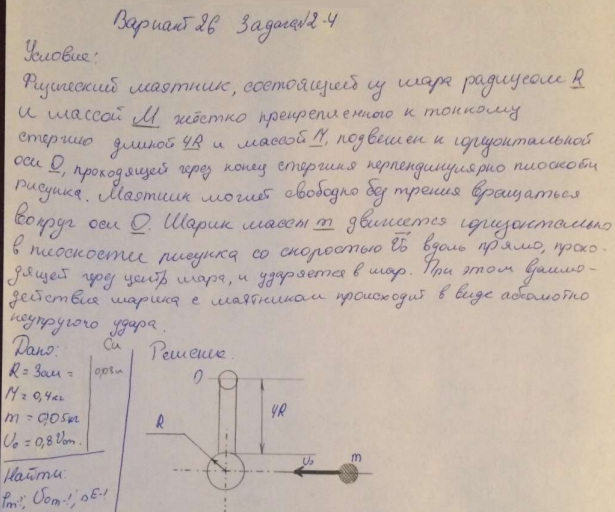 Вариант 26 Задача №2-4
Условие:
Физический маятник, состоящий из шара радиусом R
и массой M жёстко прекрепленного к тонкому
стергню длиной 4R и массой M, подвешен к горизонтальной
оси O, проходящей через конец стергиня перпендикулярно плоскоти
рисунка. Маятник могиет свободно без трения вращаться
вокруг оси O. Шарик массы m движется горизонтально
в плоскости рисунка со скоростью V₀ вдоль прямо, прохо-
дящей через центр шара, и ударяется в шар. При этом взаимо-
действие шарика с маятником происходит в виде абсолютно
неупругого удара.
Дано: Си
R = 3см = 0,03м
M = 0,4кг
m = 0,05кг
V₀ = 0,8
Найти:
Решение.
O
4R
R
V₀
m